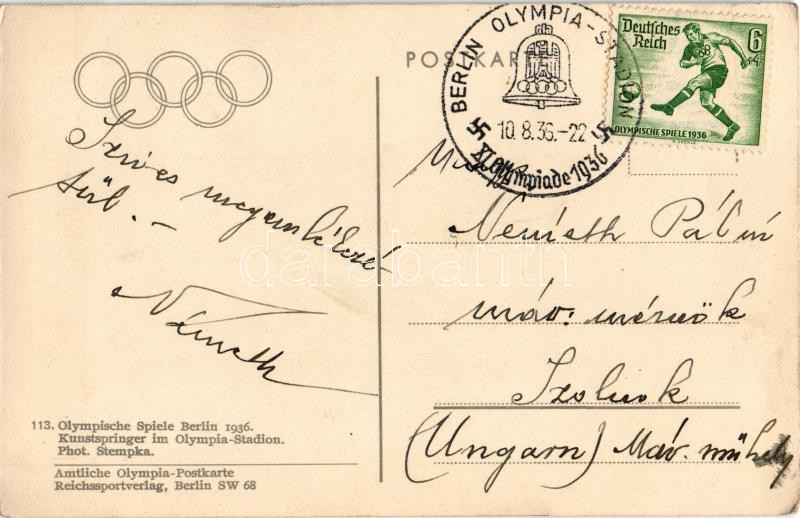 POSTKARTE
BERLIN OLYMPIA-STADION
10.8.36.-22
XI. Olympiade 1936
Deutsches
Reich
6
+4
OLYMPISCHE SPIELE 1936
Szives megemlékezé-
sül. -
Németh
Németh Pálné
máv. mérnök
Szolnok
(Ungarn) Máv. műhely
113. Olympische Spiele Berlin 1936.
Kunstspringer im Olympia-Stadion.
Phot. Stempka.
Amtliche Olympia-Postkarte
Reichssportverlag, Berlin SW 68
darabanth